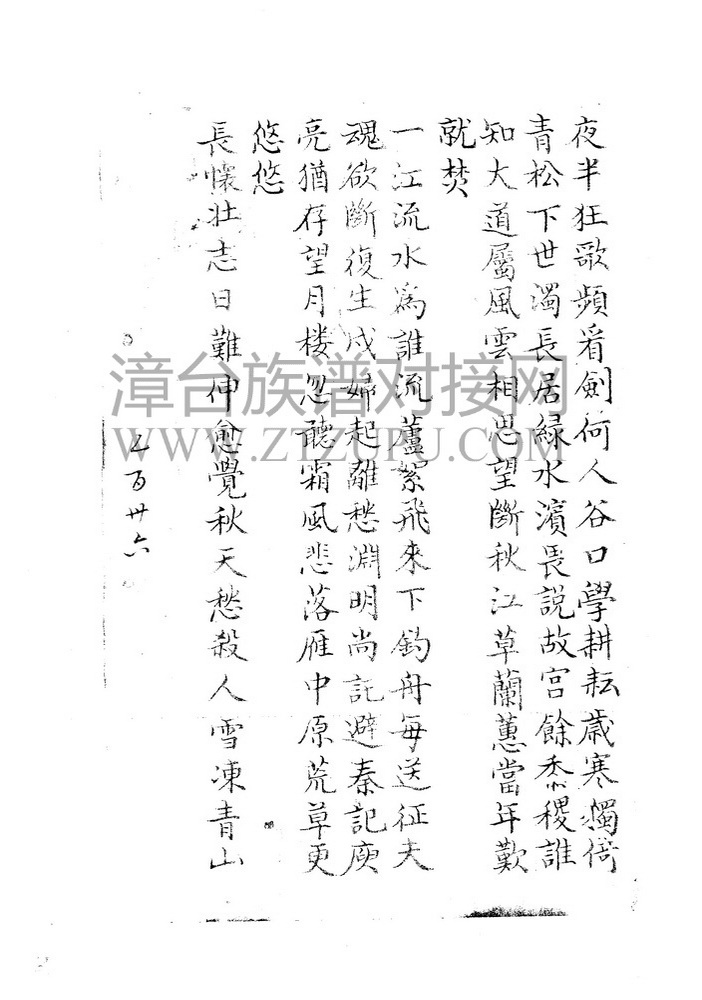 夜半狂歌頻看劍何人谷口學耕耘歲寒獨倚
青松下世濁長居緑水濱畏説故宫餘黍稷誰
知大道屬風雲相思望斷秋江草蘭蕙當年歎
就焚
一江流水為誰流蘆絮飛來下釣舟每送征夫
魂欲斷復生戍婦起離愁淵明尚託避秦記庾
亮猶存望月楼忽聽霜風悲落雁中原荒草更
悠悠
長懷壯志日難伸愈覺秋天愁殺人雪凍青山
七百卅六
漳台族谱对接网
WWW.ZTZUPU.COM